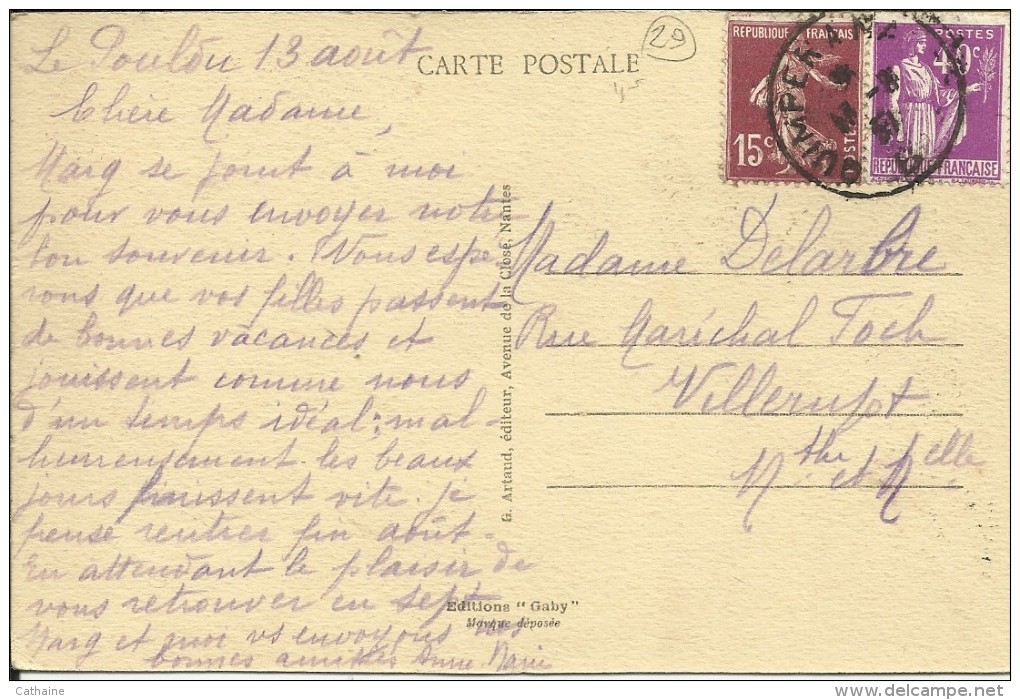 Le Pouldu 13 août
CARTE POSTALE
29
Chère Madame,
Marg se joint à moi
pour vous envoyer notre
bon souvenir. Nous espé
rons que vos filles passent
de bonnes vacances et
jouissent comme nous
d'un temps idéal; mal-
heureusement les beaux
jours finissent vite. Je
pense rentrer fin août.
En attendant le plaisir de
vous retrouver en sept
Marg et moi vs envoyons nos
bonnes amitiés Anne Marie
REPUBLIQUE FRANÇAIS
15c
POSTES
40c
REPUBLIQUE FRANÇAISE
QUIMPER
Madame Delarbre
Rue Maréchal Foch
Villerupt
Mthe et Melle
G. Artaud, éditeur, Avenue de la Close, Nantes
Editions "Gaby"
Marque déposée
Cathaine
delcampe.net